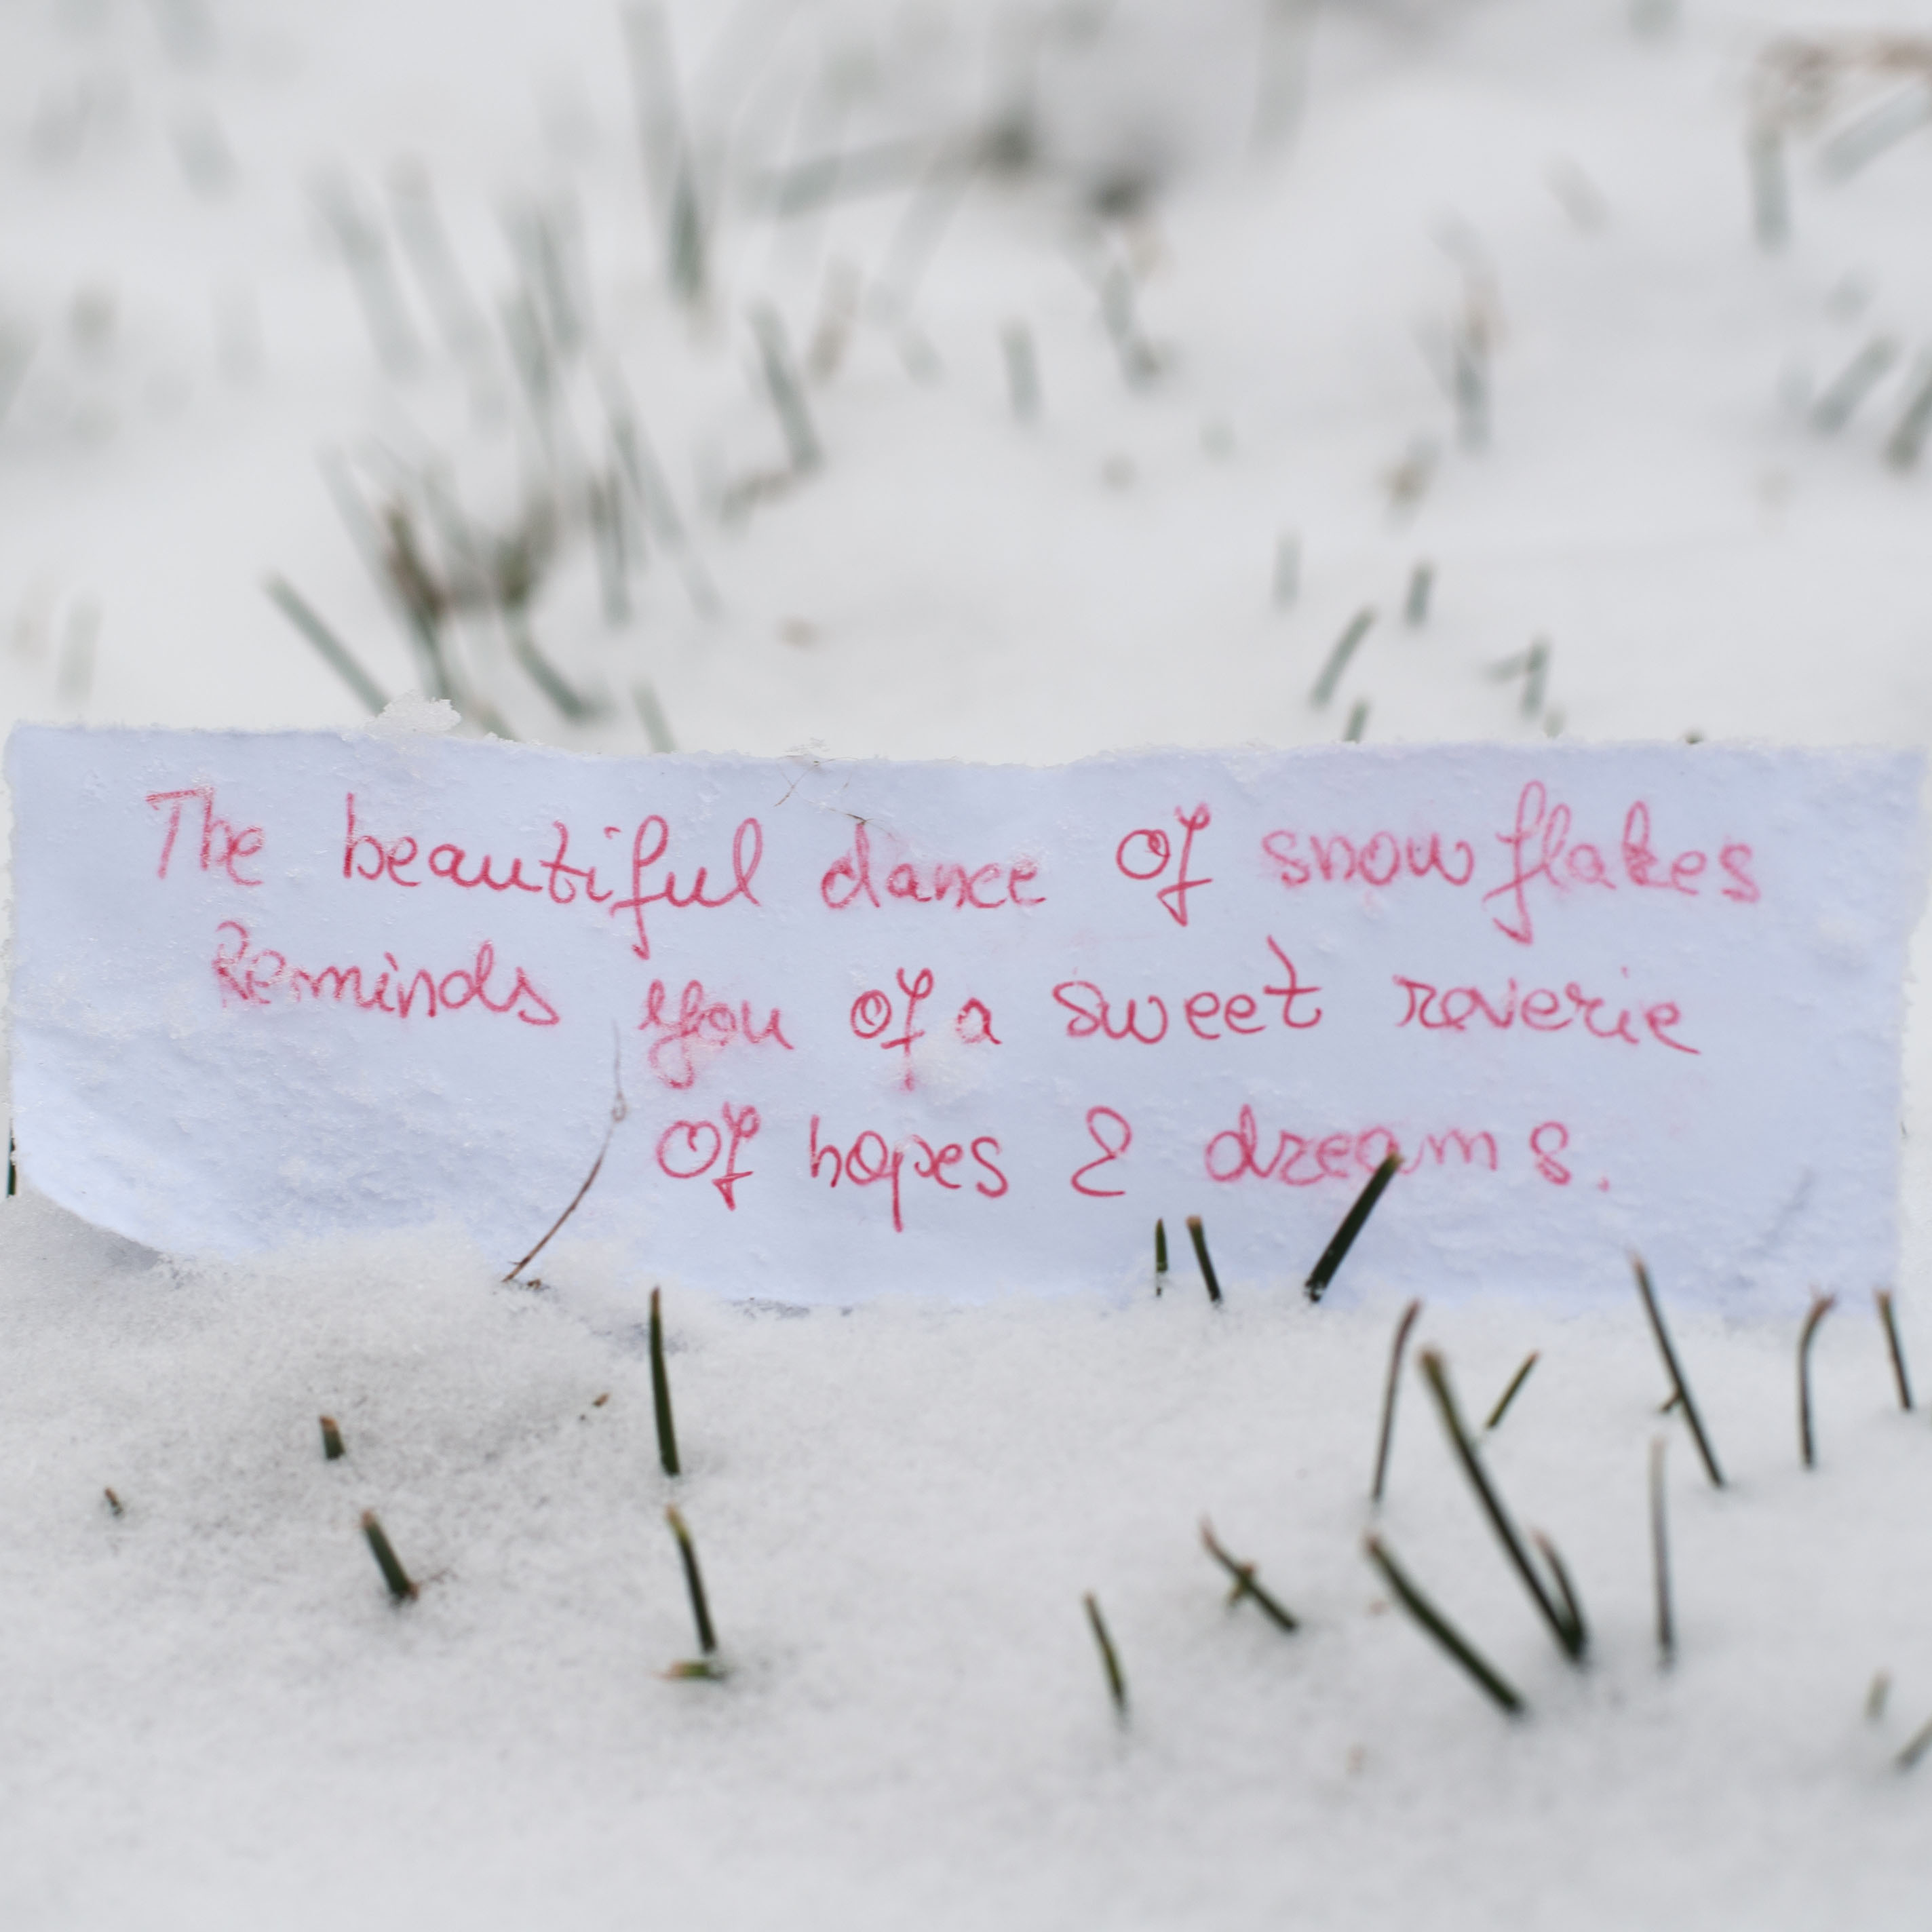 The beautiful dance of snowflakes
Reminds you of a sweet reverie
Of hopes & dreams.